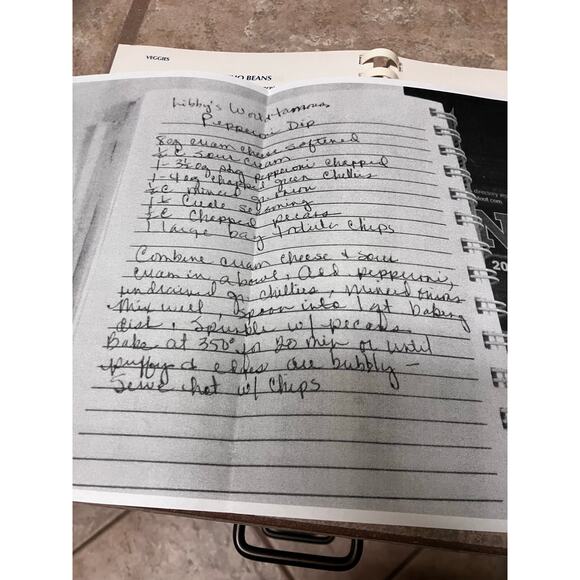 VEGGIES
BEANS
Libby's World-famous
Pepperoni Dip
8oz cream cheese softened
½ C sour cream
1 - 3½ oz pkg pepperoni chopped
1 - 4 oz chopped green chilies
½ C minced onion
1 t seasoning
½ C chopped pecans
1 large bag Tortilla chips
Combine cream cheese & sour
cream in a bowl, Add pepperoni,
undrained gr chillies, minced onions
Mix well, spoon into 1 qt baking
dish, Sprinkle w/ pecans
Bake at 350° for 20 min or until
puffy & edges are bubbly —
Serve hot w/ Chips
directory
20